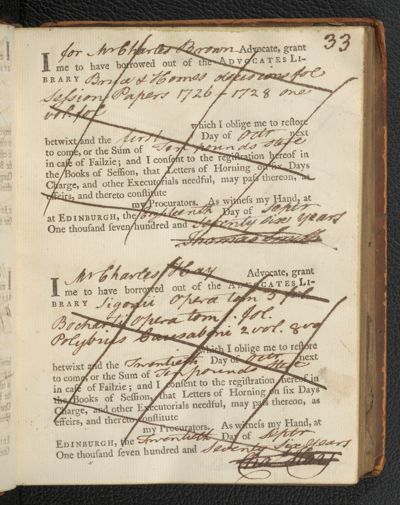 33
I for Mr Charles Brown Advocate, grant
me to have borrowed out of the ADVOCATES LI-
BRARY Bruce & Homes decisions fol
Session Papers 1726-1728 one
vol. fol
which I oblige me to restore
betwixt and the Day of Octr next
to come, or the Sum of Ten pounds state
in case of Failzie; and I consent to the registration hereof in
the Books of Session, that Letters of Horning on six Days
Charge, and other Executorials needful, may pass thereon, as
effeirs, and thereto constitute
my Procurators. As witness my Hand, at
at EDINBURGH, the Day of Septr
One thousand seven hundred and Seventy six years
Thomas
I Mr Charles Hay Advocate, grant
me to have borrowed out of the ADVOCATES LI-
BRARY Sigonii Opera tom 3 fol
Bocharti Opera tom 1. fol.
Polybius Causaboni 2 vol. 8vo
which I oblige me to restore
betwixt and the Twentieth Day of Octr next
to come, or the Sum of Ten pounds state
in case of Failzie; and I consent to the registration hereof in
the Books of Session, that Letters of Horning on six Days
Charge, and other Executorials needful, may pass thereon, as
effeirs, and thereto constitute
my Procurators. As witness my Hand, at
EDINBURGH, the Twentieth Day of Septr
One thousand seven hundred and Seventy Six years
Cha: Hay